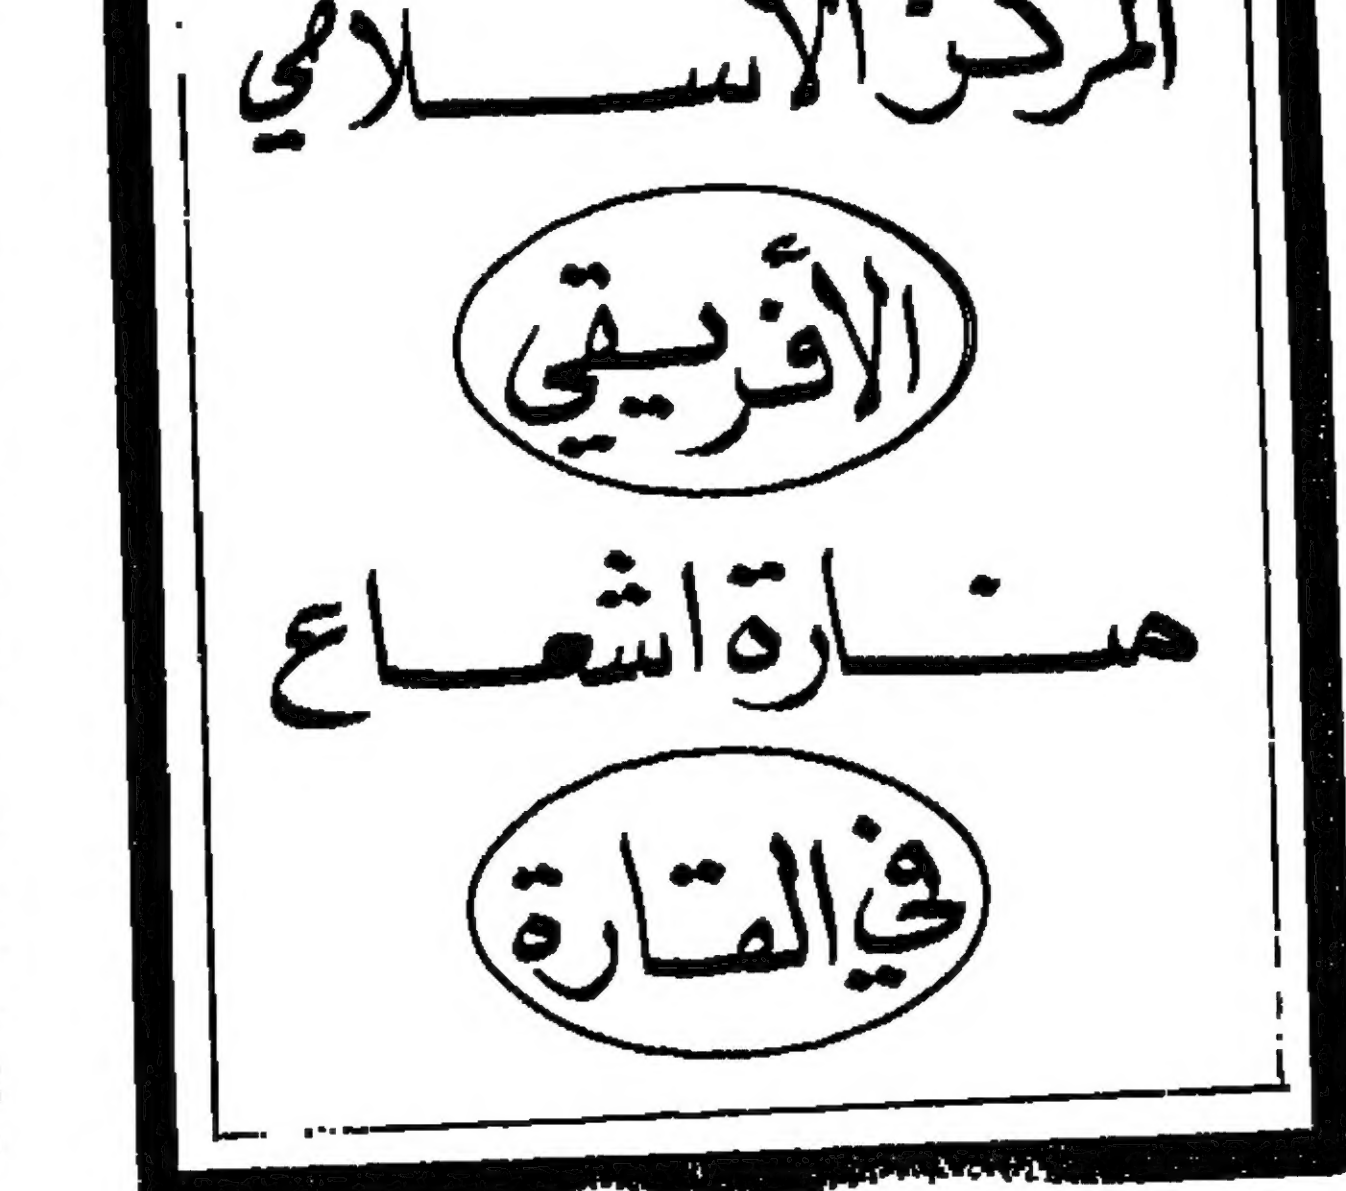 المركز الاسلامي
الأفريقي
منارة اشعاع
في القارة